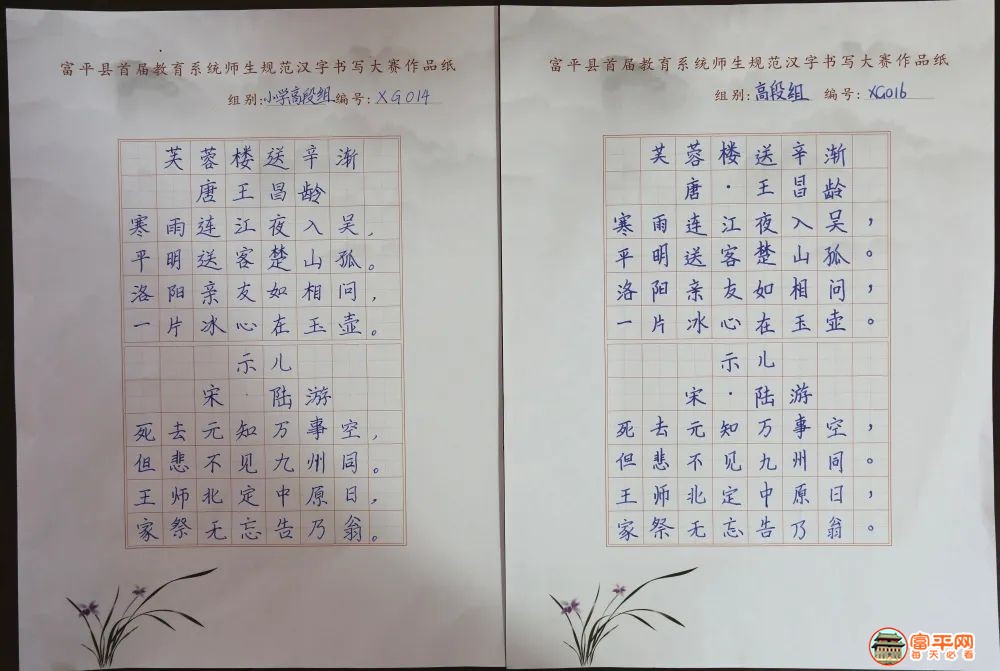 富平县首届教育系统师生规范汉字书写大赛作品纸
组别:小学高段组 编号:XG014
芙蓉楼送辛渐
唐王昌龄
寒雨连江夜入吴,
平明送客楚山孤。
洛阳亲友如相问,
一片冰心在玉壶。
示儿
宋·陆游
死去元知万事空,
但悲不见九州同。
王师北定中原日,
家祭无忘告乃翁。
富平县首届教育系统师生规范汉字书写大赛作品纸
组别:高段组 编号:XG016
芙蓉楼送辛渐
唐·王昌龄
寒雨连江夜入吴,
平明送客楚山孤。
洛阳亲友如相问,
一片冰心在玉壶。
示儿
宋·陆游
死去元知万事空,
但悲不见九州同。
王师北定中原日,
家祭无忘告乃翁。
富平网
每天必看